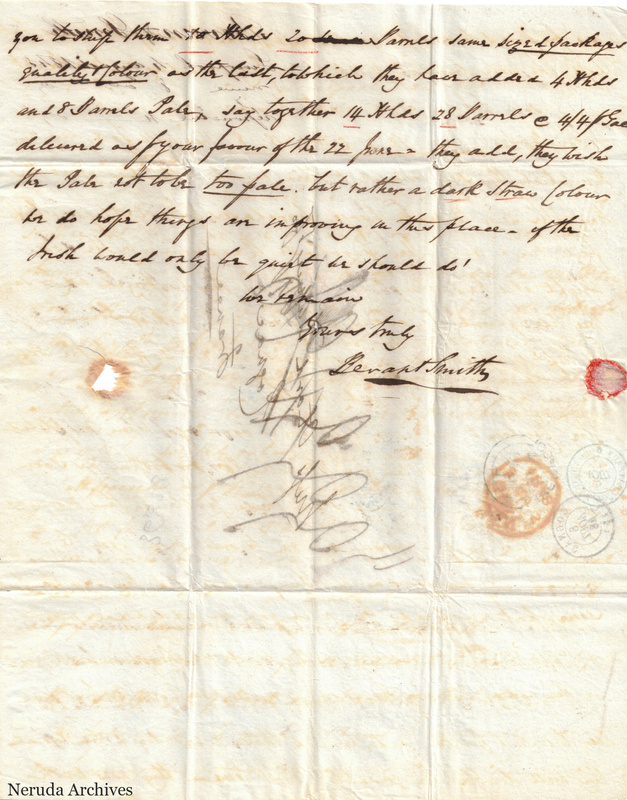 you to ship them 10 Hhds 20 Barrels same sized packages
quality & Colour as the last, to which they have added 4 Hhds
and 8 Barrels Pale, say together 14 Hhds 28 Barrels @ 4/4
delivered as pr your favour of the 22 June - they add, they wish
the Pale not to be too pale. but rather a dark Straw Colour
we do hope things are improving in this place - if the
Irish would only be quiet we should do!
We remain
Yours truly
Bevan & Smith
Neruda Archives